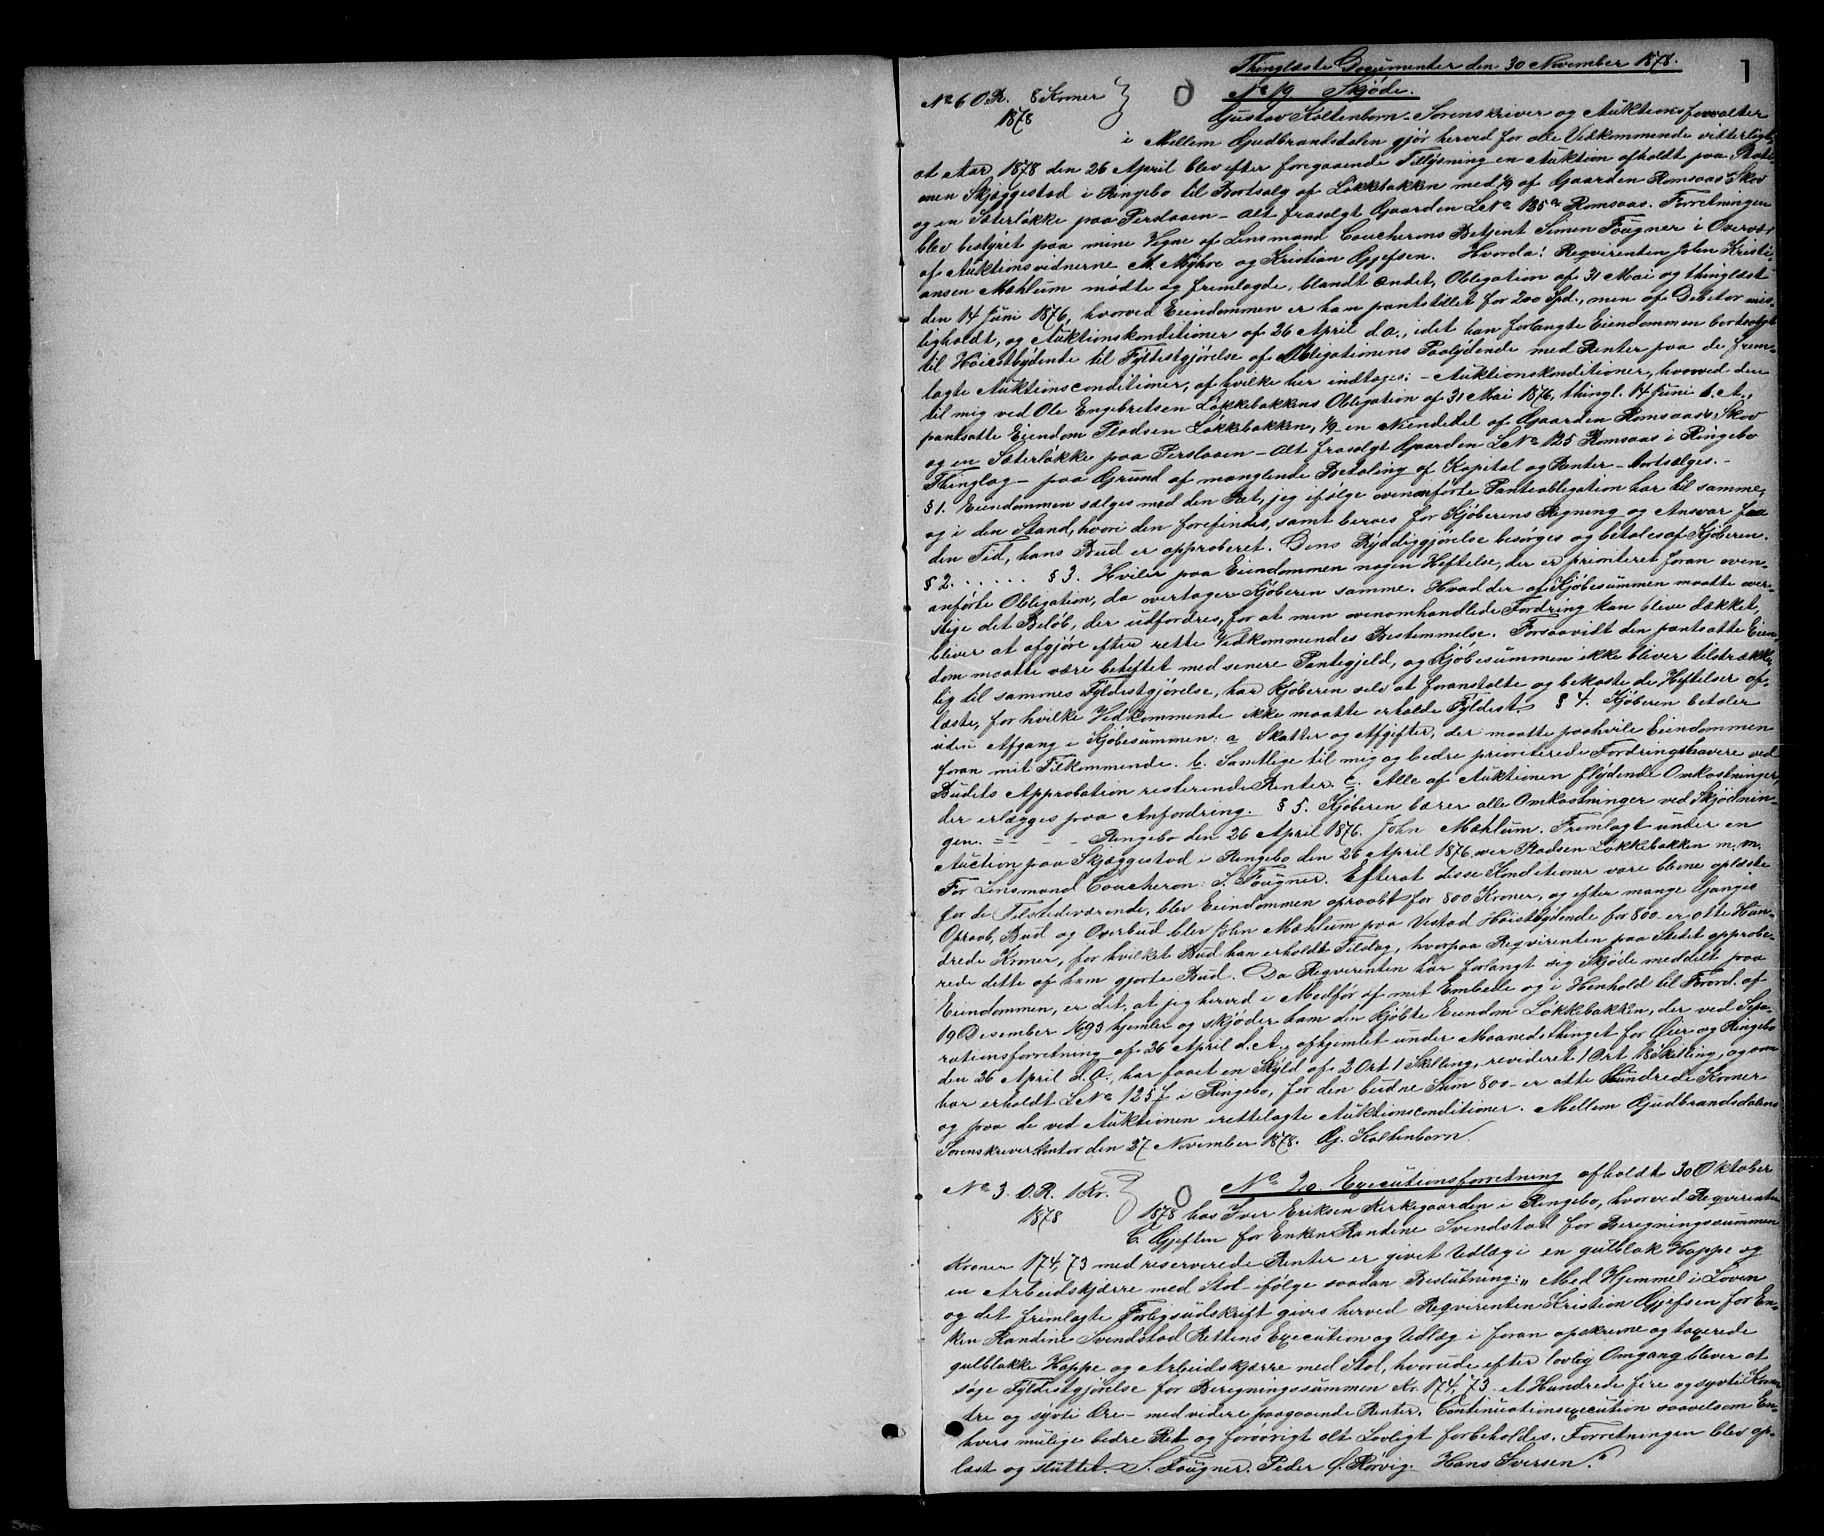 Thinglæste Documenter den 30 November 1878.
1
No 6 O.R. 8 Kroner
1878
No 19 Skjøde.
Gustav Koltenborn Sorenskriver og Auktionsforvalter
i Mellem Gudbrandsdalen gjør herved for alle Vedkommende vitterligt,
at Aar 1878 den 26 April blev efter foregaaende Tillysning en Auktion afholdt paa Stati-
onen Skjæggestad i Ringebo til Bortsalg af Løkkebakken med 1/9 af Gaarden Romsaas's Skov
og en Sæterløkke paa Perslaaen – alt frasolgt Gaarden LNo 125a Romsaas. Forretningen
blev bestyret paa mine Vegne af Lensmand Coucherons Betjent Simen Fougner i Overvær
af Auktionsvidnerne M. Myhre og Kristian Gjefsen. Hvorda: Reqvirenten John Kristi-
ansen Mæhlum mødte og fremlagde, blandt andet, Obligation af 31 Mai og thinglæst
den 14 Juni 1876, hvorved Eiendommen er ham pantstillet for 200 Spd., men af Debitor mis-
ligholdt, og Auktionskonditioner af 26 April d.a., idet han forlangte Eiendommen bortsolgt
til Høistbydende til Fyldestgjørelse af Obligationens Paalydende med Renter paa de frem-
lagte Auktionsconditioner, af hvilke her indtages: – Auktionskonditioner, hvorved den
til mig ved Ole Engebretsen Løkkebakkens Obligation af 31 Mai 1876, thingl. 14 Juni s. A.,
pantsatte Eiendom Pladsen Løkkebakken, 1/9 en Niendedel af Gaarden Romsaas's Skov
og en Sæterløkke paa Perslaaen – alt frasolgt Gaarden LNo 125 Romsaas i Ringebo
Thinglag – paa Grund af manglende Betaling af Kapital og Renter – bortsælges. –
§ 1. Eiendommen sælges med den Ret, jeg ifølge ovenanførte Panteobligation har til samme,
og i den Stand, hvori den forefindes, samt beroes for Kjøberens Regning og Ansvar fra
den Tid, hans Bud er approberet. Dens Ryddiggjørelse besørges og betales af Kjøberen.
§ 2. . . . . . . § 3. Hviler paa Eiendommen nogen Heftelse, der er prioriteret foran oven-
anførte Obligation, da overtager Kjøberen samme. Hvad der af Kjøbesummen maatte over-
stige det Beløb, der udfordres, for at min ovenomhandlede Fordring kan blive dækket,
bliver at afgjøre efter rette Vedkommendes Bestemmelse. Forsaavidt den pantsatte Eien-
dom maatte være beheftet med senere Pantegjeld, og Kjøbesummen ikke bliver tilstrække-
lig til sammes Fyldestgjørelse, har Kjøberen selv at foranstalte og bekoste de Heftelser af-
læste, for hvilke Vedkommende ikke maatte erholde Fyldest. § 4. Kjøberen betaler
uden Afgang i Kjøbesummen: a Skatter og Afgifter, der maatte paahvile Eiendommen
foran mit Tilkommende. b. Samtlige til mig og bedre prioriterede Fordringshavere ved
Budets Approbation resterende Renter. c. Alle af Auktionen flydende Omkostninger,
der erlægges paa Anfordring. § 5. Kjøberen bærer alle Omkostninger ved Skjødnin-
gen. = = – – Ringebo den 26 April 1876. John Mæhlum. Fremlagt under en
Auction paa Skjæggestad i Ringebo den 26 April 1876 over Pladsen Løkkebakken m. m.
For Lensmand Coucheron: S. Fougner. Efterat disse Konditioner vare blevne oplæste
for de Tilstedeværende, blev Eiendommen opraabt for 800 Kroner, og efter mange Ganges
Opraab, Bud og Overbud blev John Mæhlum paa Vestad Høistbydende for 800. er otte Hun-
drede Kroner, for hvilket Bud han erholdt Tilslag, hvorpaa Reqvirenten paa Stedet approbe-
rede dette af ham gjorte Bud. Da Reqvirenten har forlangt sig Skjøde meddelt paa
Eiendommen, er det, at jeg herved i Medfør af mit Embede og i Henhold til Forord. af
19 Desember 1693 hjemler og skjøder ham den kjøbte Eiendom Løkkebakken, der ved Sepa-
rationsforretning af 26 April d. A., afhjemlet under Maanedsthinget for Øier og Ringebo
den 26 April d. A., har faaet en Skyld af 2 Ort 1 Skilling, revideret 1 Ort 18 Skilling, og som
har erholdt LNo 125f i Ringebo, for den budne Sum 800 – er otte Hundrede Kroner
og paa de ved Auktionen irettelagte Auktionsconditioner. Mellem Gudbrandsdalens
Sorenskriverkontor den 27 November 1878. G. Koltenborn.
No 3. O.R. 1 Kr.
1878
No 20 Executionsforretning afholdt 30 Oktober
1878 hos Iver Eriksen Kirkegaarden i Ringebo, hvorved Reqvirenten
C. Gjefsen for Enken Randine Svendstad for Beregningssummen
Kroner 174,73 med reserverede Renter er givet Udlæg i en gulblak Hoppe og
en Arbeidskjærre med Stol – ifølge saadan Beslutning: „Med Hjemmel i Loven
og det fremlagte Forligsudskrift gives herved Reqvirenten Kristian Gjefsen for En-
ken Randine Svendstad Rettens Execution og Udlæg i foran opskrevne og taxerede
gulblakke Hoppe og Arbeidskjærre med Stol, hvorude efter lovlig Omgang bliver at
søge Fyldestgjørelse for Beregningssummen Kr. 174,73 – et Hundrede fire og sytti Kroner
tre og sytti Øre – med videre paagaaende Renter. Continuationsexecution saavelsom En-
hvers mulige bedre Ret og forøvrigt alt Lovligt forbeholdes. Forretningen blev op-
læst og sluttet. S. Fougner. Peder O. Rørvig. Hans Iversen.